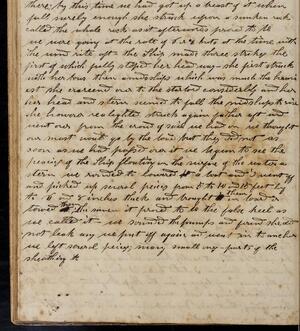 there; by this time we had got up a breast of it when
full surely enough she struck upon a sunken rock
called the whale rock as it afterwards proved to be
we were going at the rate of 5 or 6 knots at the time with
the wind aft the Ship made three strikes the
first of which fully stoped her head way - she first struck
with her bows then amidships which was much the heavi
est she careened over to the starbord considerably and her
her head and stern seemed to fall the amidships to rise
she however realighted struck again farther aft and
went over from the crack of each we had on we thought
our masts would go by the board but they did not as
soon as we had passed over it we began to see the
peices of the Ship floating on the surface of the water a
stern we rounded to lowered a boat and I went off
and picked up several peices from 8 to 10 feet by
6 and 8 inches thick and brought on board a
towed the same it proved to be the false keel as
we called it we sounded the pumps and found she did
not leak any we put off again and went in to anchor
we left several peices many small ones parts of the
sheathing &c